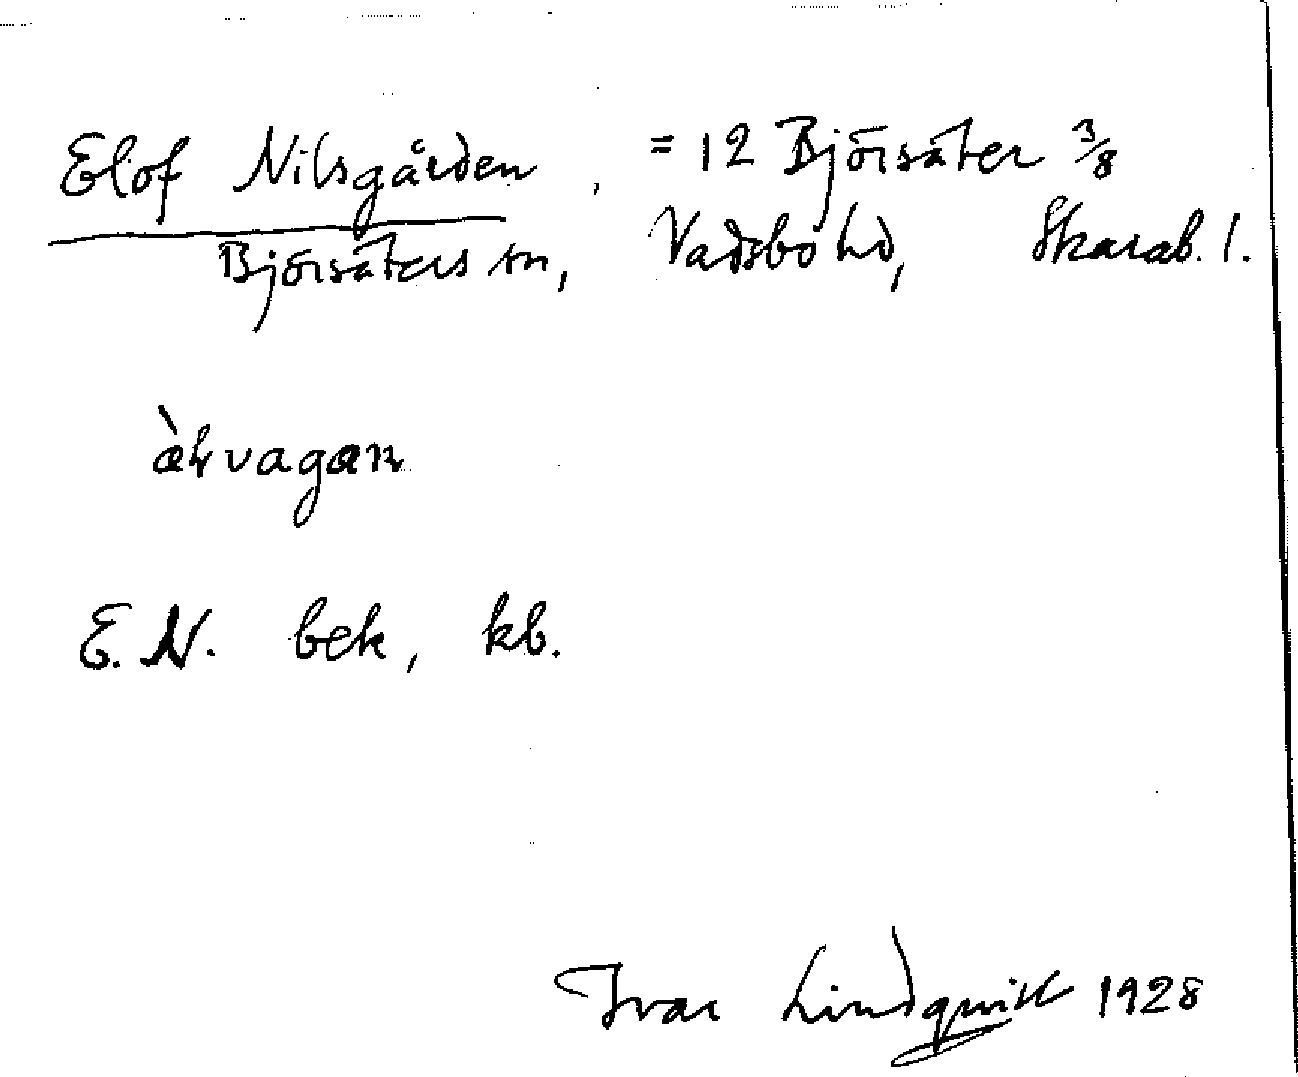 Elof Nilsgården, = 12 Björsäter 3/8
Björsäters sn, Vadsbo hd, Skarab. l.
E. N. bek, kb.
Ivar Lindquist 1928